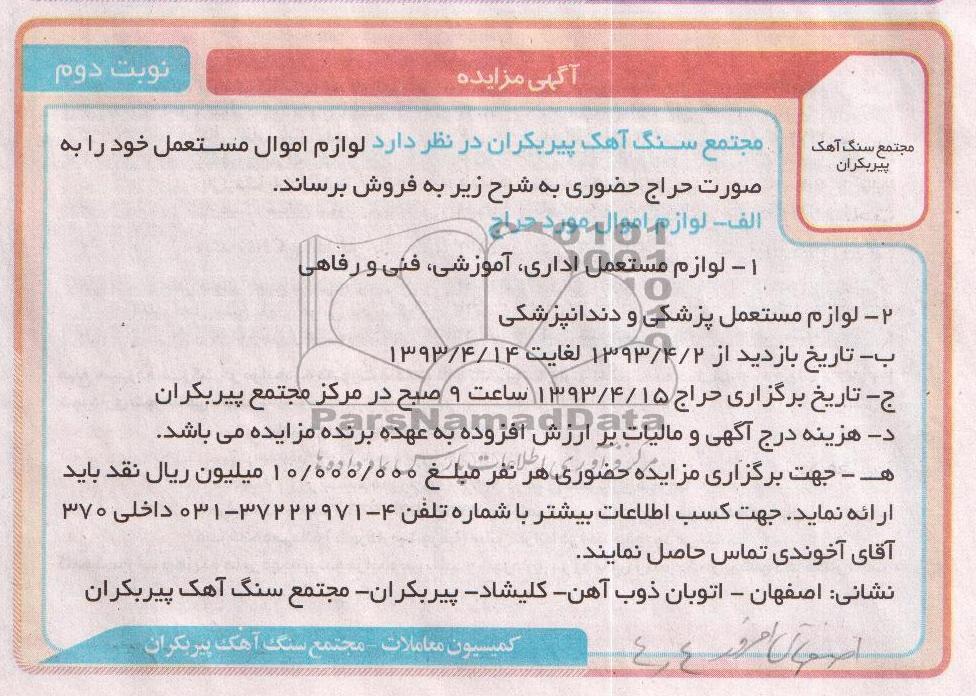 آگهی مزایده
نوبت دوم
مجتمع سنگ آهک
پیربکران
مجتمع سنگ آهک پیربکران در نظر دارد لوازم اموال مستعمل خود را به
صورت حراج حضوری به شرح زیر به فروش برساند.
الف- لوازم اموال مورد حراج
۱- لوازم مستعمل اداری، آموزشی، فنی و رفاهی
۲- لوازم مستعمل پزشکی و دندانپزشکی
ب- تاریخ بازدید از ۱۳۹۳/۴/۲ لغایت ۱۳۹۳/۴/۱۴
ج- تاریخ برگزاری حراج ۱۳۹۳/۴/۱۵ ساعت ۹ صبح در مرکز مجتمع پیربکران
ParsNamadData
د- هزینه درج آگهی و مالیات بر ارزش افزوده به عهده برنده مزایده می باشد.
هـ - جهت برگزاری مزایده حضوری هر نفر مبلغ ۱۰/۰۰۰/۰۰۰ میلیون ریال نقد باید
ارائه نماید. جهت کسب اطلاعات بیشتر با شماره تلفن ۴-۳۷۲۲۲۹۷۱-۰۳۱ داخلی ۳۷۰
آقای آخوندی تماس حاصل نمایند.
نشانی: اصفهان - اتوبان ذوب آهن- کلیشاد- پیربکران- مجتمع سنگ آهک پیربکران
کمیسیون معاملات - مجتمع سنگ آهک پیربکران